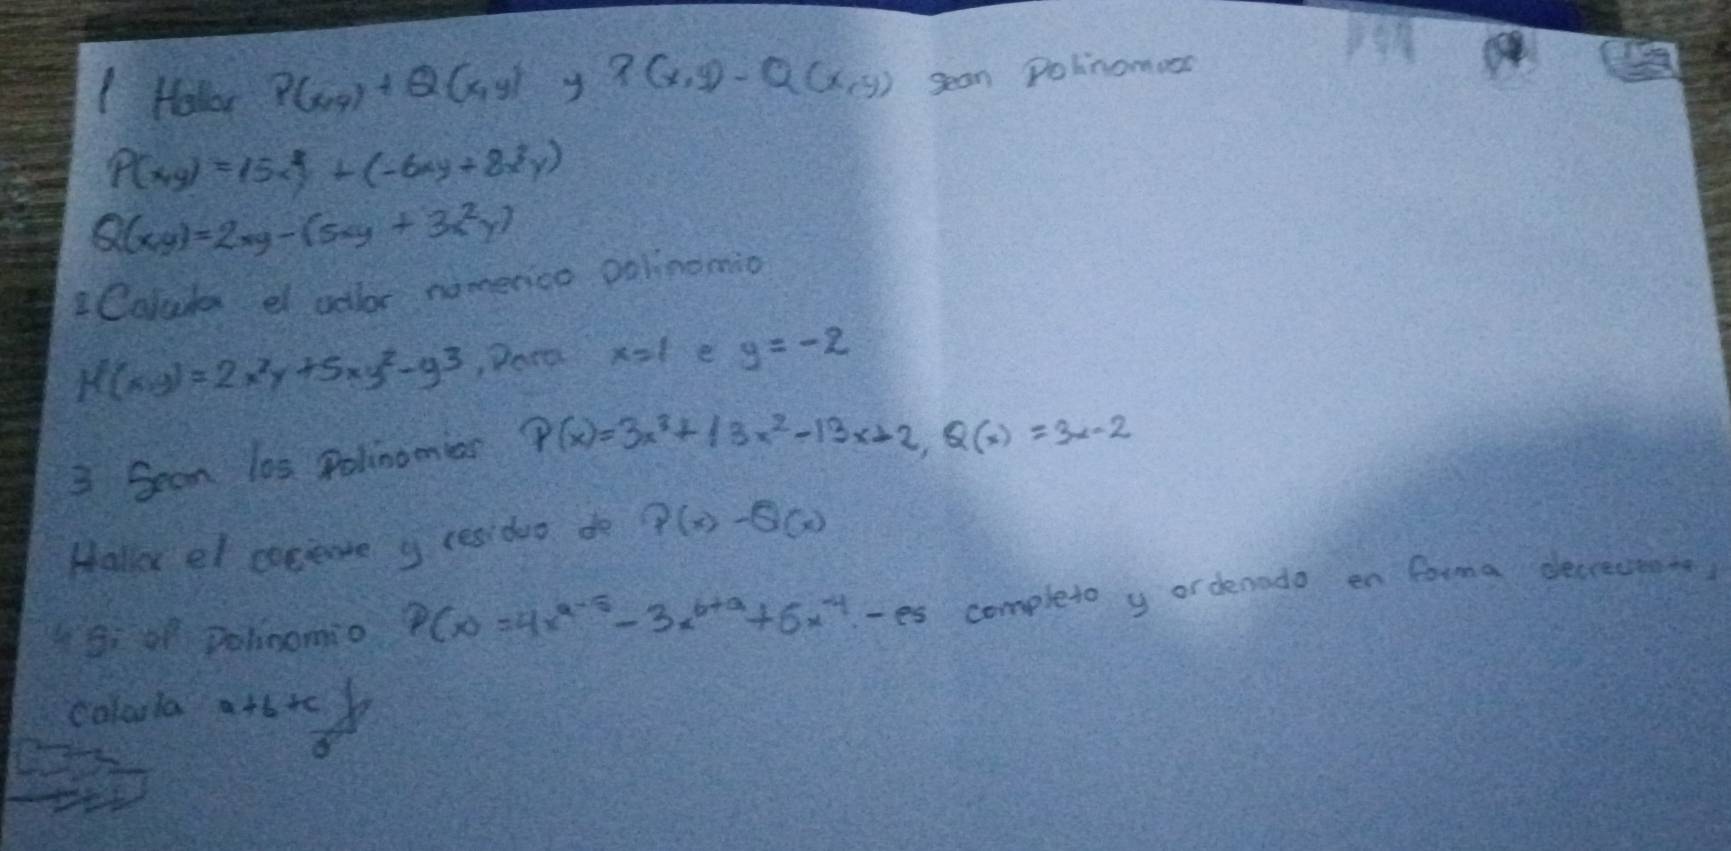 1 Hallar P(x,y) + Q(x,y) y P(x,y) - Q(x,y) sean Polinomios
P(x,y) = 15x²y + (-6xy + 8x²y)
Q(x,y) = 2xy - (5xy + 3x²y)
2 Calcula el valor numerico polinomio
H(x,y) = 2x²y + 5xy² - y³, Para x=1 e y=-2
3 Sean los Polinomios P(x) = 3x³ + 13x² - 13x + 2, Q(x) = 3x-2
Hallar el cociente y residuo de P(x) - Q(x)
4 Si el Polinomio P(x) = 4x^(a-5) - 3x^(b+a) + 5x^(-4) - es completo y ordenado en forma decreciente,
Calcula a+b+c